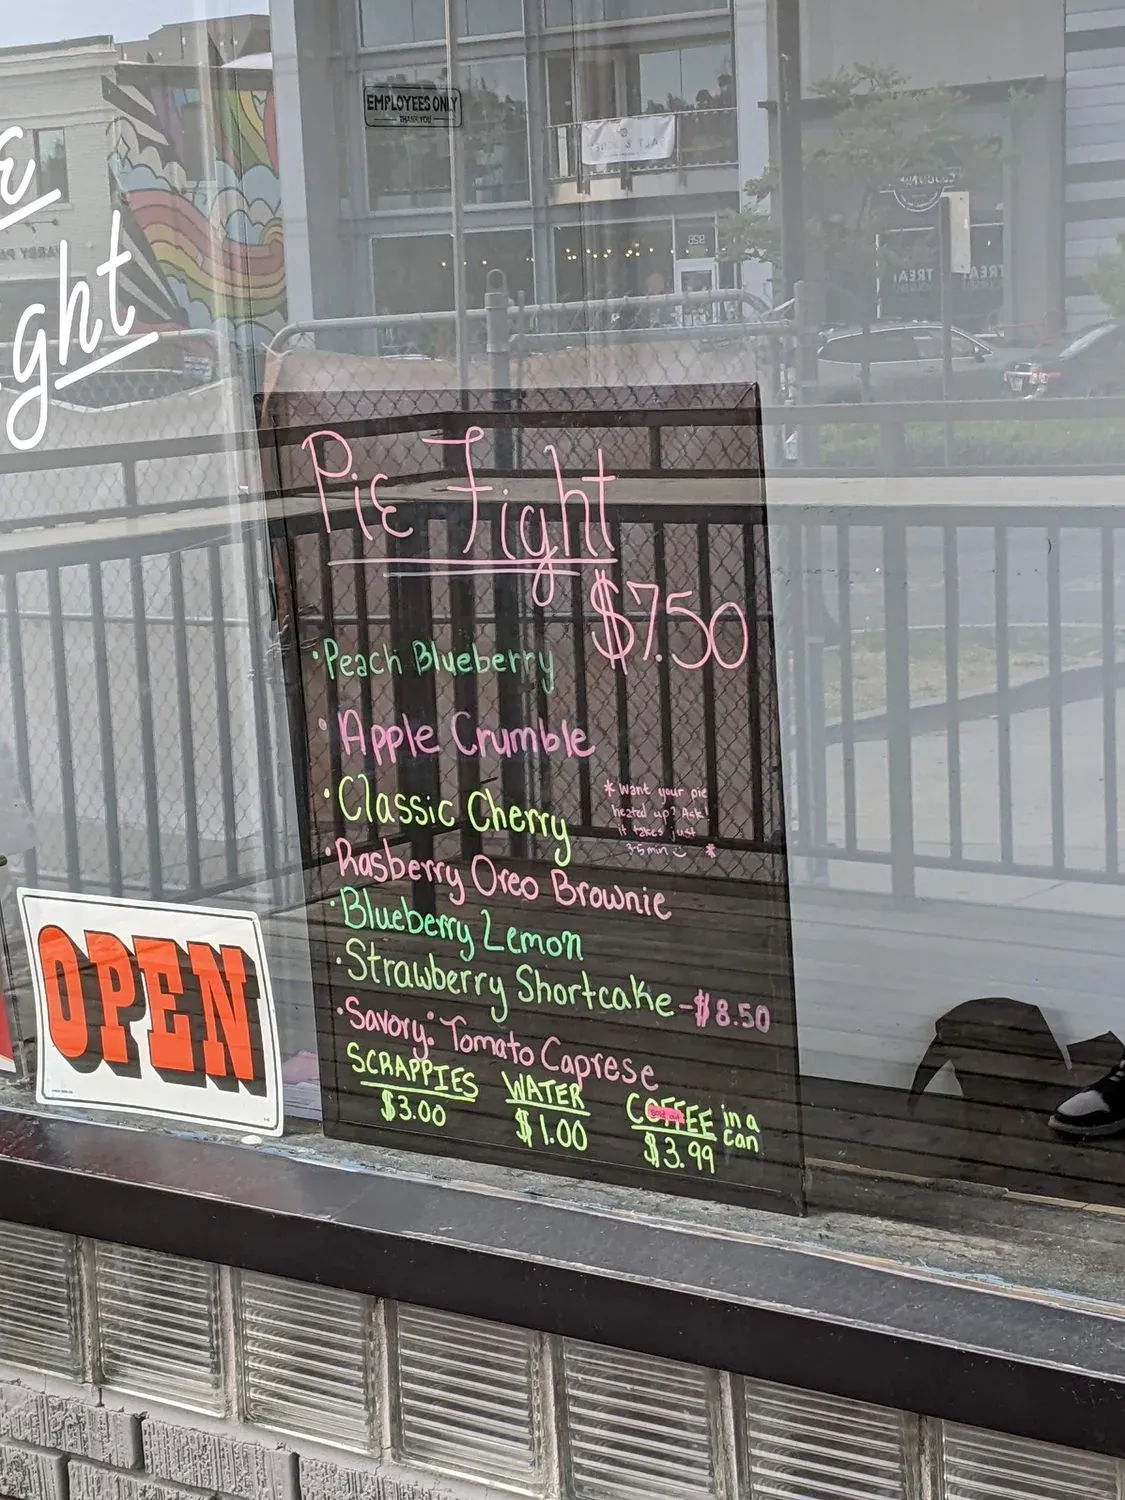 EMPLOYEES ONLY
THANK YOU
ght
Pie Fight
$7.50
• Peach Blueberry
• Apple Crumble
• Classic Cherry
* Want your pie
heated up? Ask!
it takes just
3-5 min *
• Rasberry Oreo Brownie
• Blueberry Lemon
• Strawberry Shortcake - $8.50
• Savory: Tomato Caprese
SCRAPPIES WATER COFFEE in a can
sold out
$3.00 $1.00 $3.99
OPEN